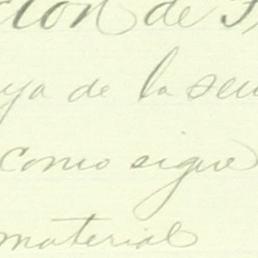 cion de
ya de la
como sigue
material